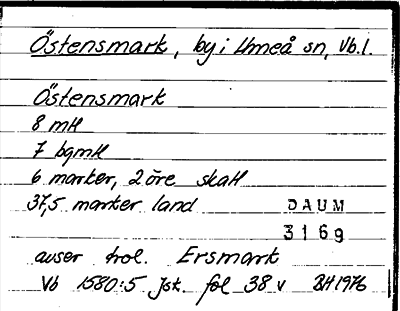 Östensmark, by i Umeå sn, Vb.l.
Östensmark
8 mtl
7 bgmtl
6 marker, 2 öre skatt
37,5 marker land
DAUM
3169
avser trol. Ersmark
Vb 1580:5 Jsk. fol 38 v BH 1976